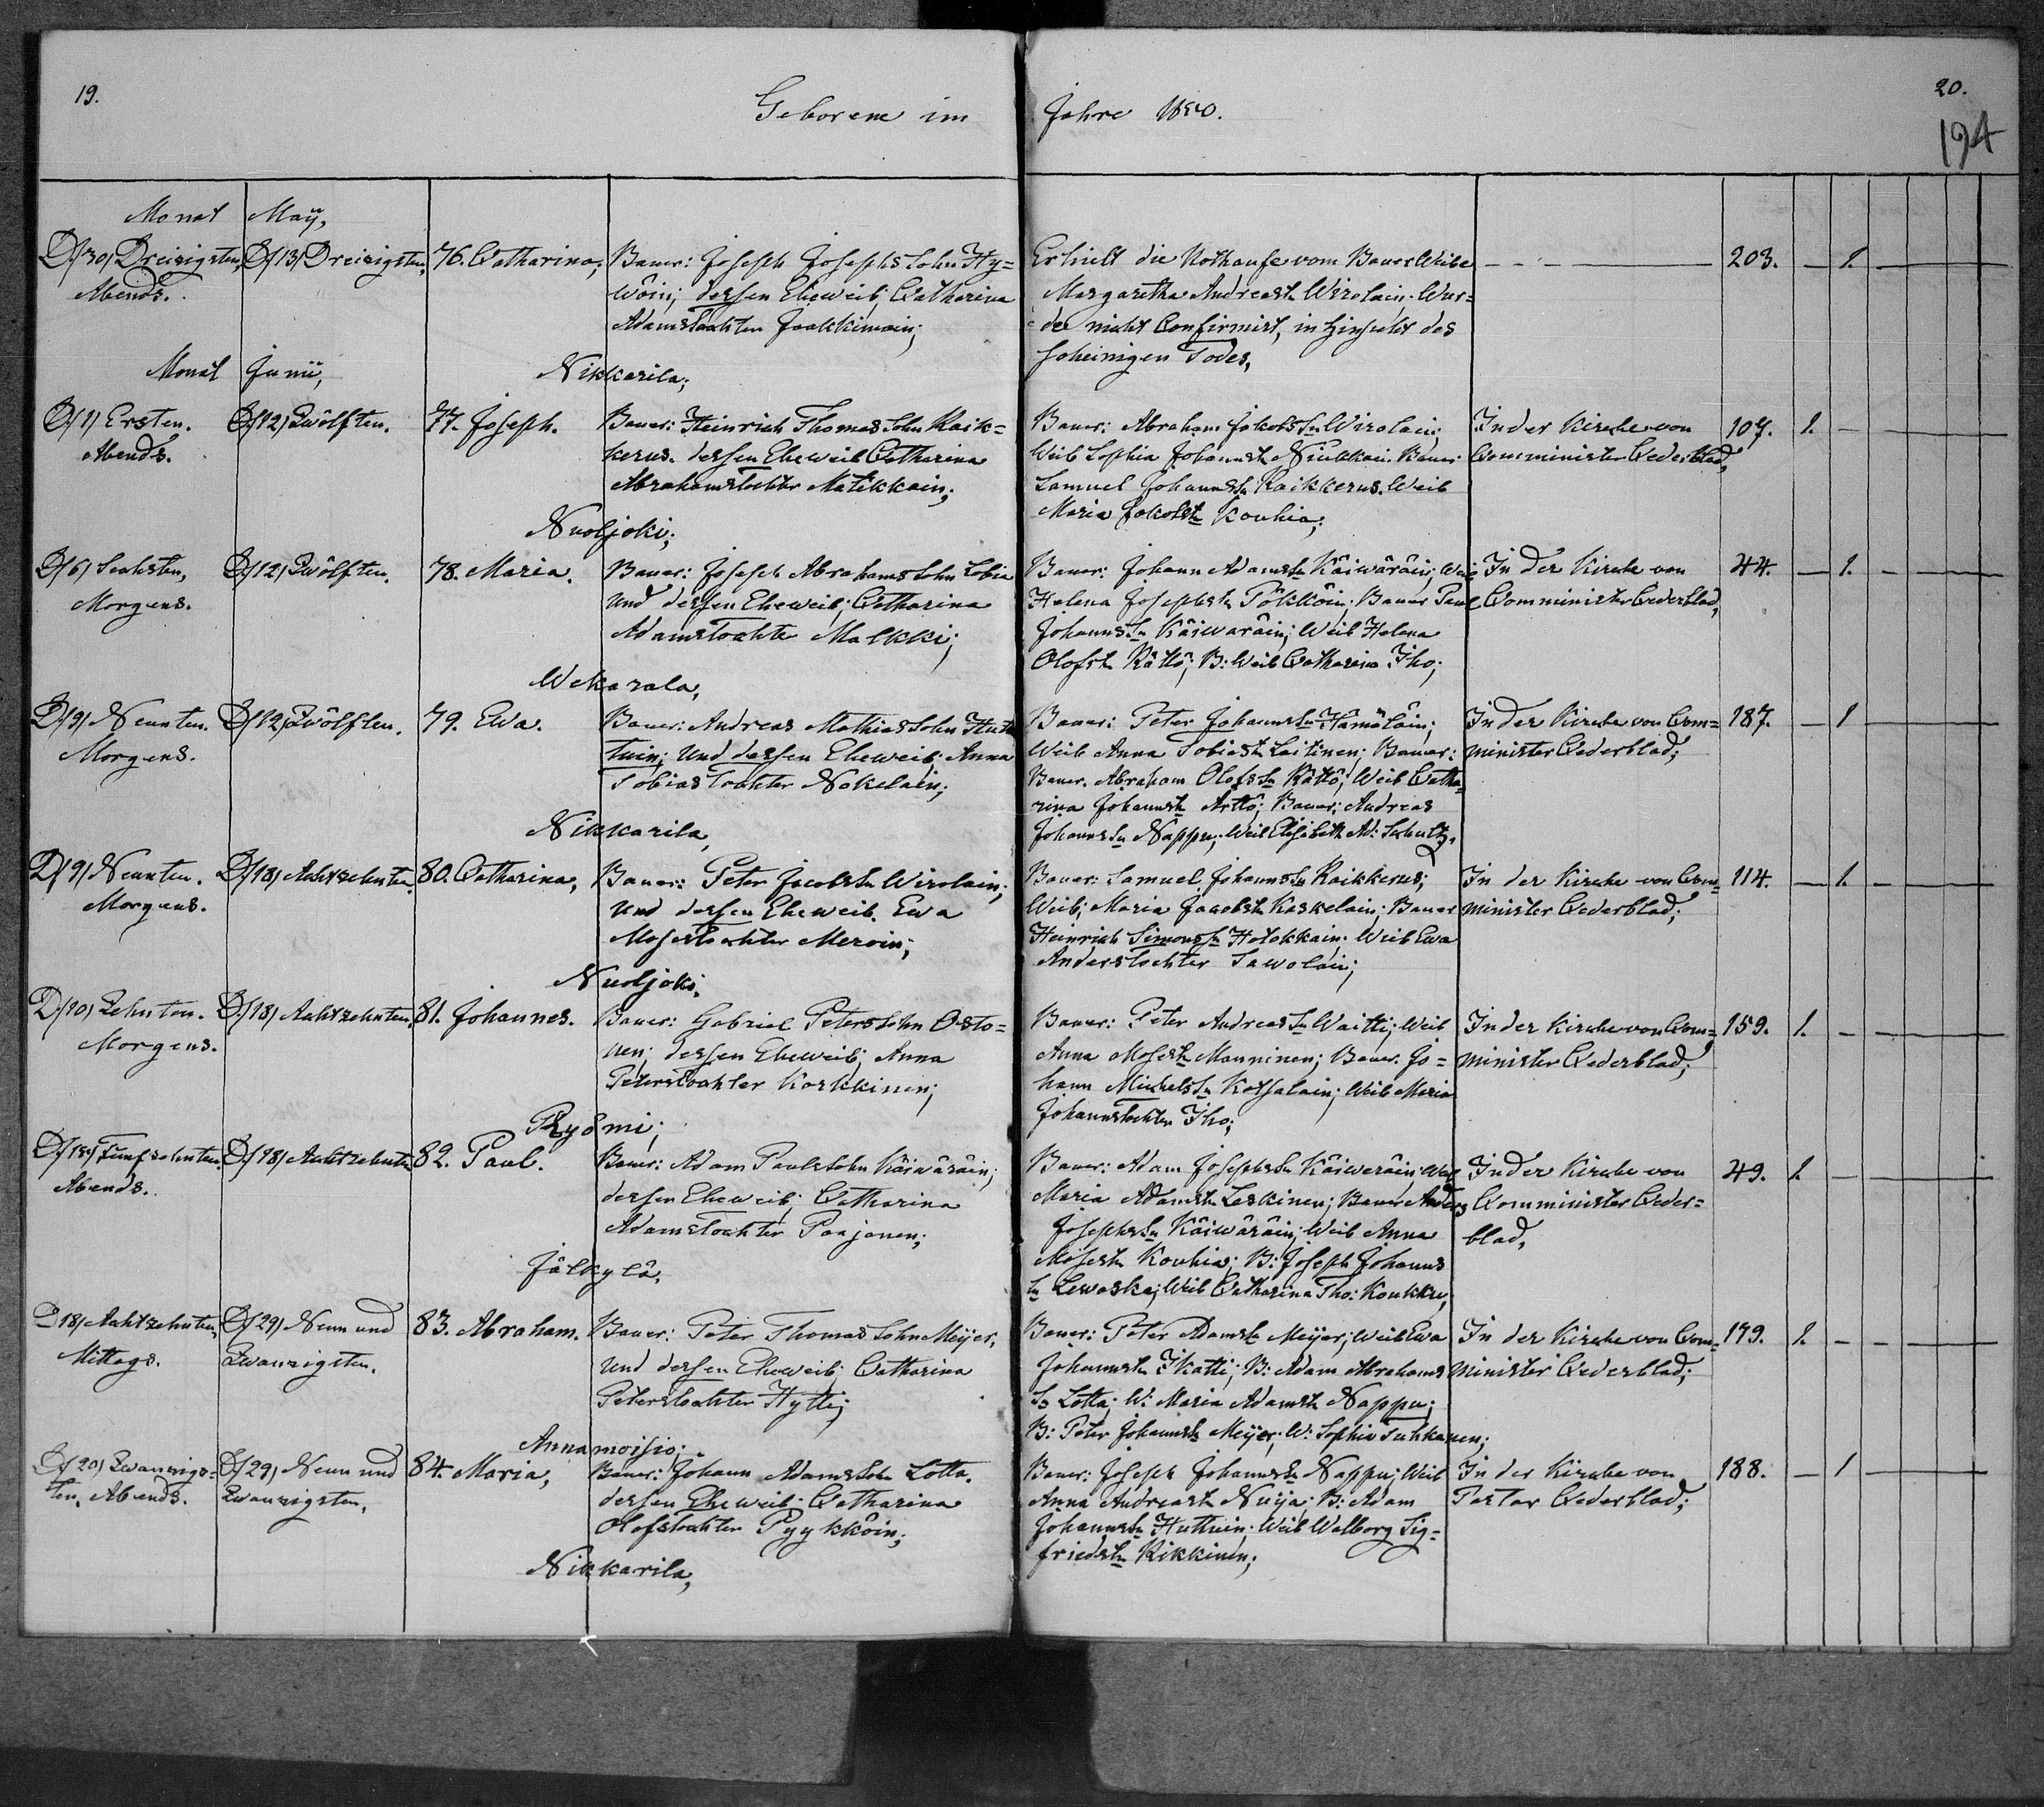 19.
20.
194
Geborene im Jahre 1840.
Monat Maÿ,
D/30/ Dreizigsten, D/13/ Dreizigsten, 76. Catharina,
Abends.
Bauer: Joseph Josephs Sohn Hy=
wöin; dessen Eheweib; Catharina
Adamstochter Jaakkimain;
Nikkarila;
Erhielt die Nothaufe vom Bauer Weibe
Margaretha Andreastr Wirolain. Wur=
de nicht Confirmirt, in hinsicht des
Todes,
203. — 1. —
Monat Junii,
D/1/ Ersten. D/12/ Zwölften. 77. Joseph.
Abends.
Bauer: Heinrich Thomas Sohn Raik=
kerus. dessen Eheweib Catharina
Abrahamstochter Matikkain;
Nuoljoki;
Bauer: Abraham Jakobs Sn Wirolain;
Weib Sophia Johannstr Niukkain. Bauer
Samuel Johanns Sn Raikkerus. Weib
Maria Jakobstr Kouhia;
In der Kirche von
Comminister Cederblad,
107. 1. —
D/6/ Sechsten, D/12/ Zwölften. 78. Maria.
Morgens.
Bauer: Joseph Abrahams Sohn Tobia
und dessen Eheweib; Catharina
Adamstochter Malkki;
Wekarala,
Bauer: Johann Adams Sn Käiwäräin; Weib
Helena Josephstr Pökköin; Bauer Paul
Johanns Sn Käiwaräin; Weib Helena
Olofstr Rättö; B: Weib Catharina Iho;
In der Kirche von
Comminister Cederblad,
44. — 1. —
D/9/ Neunten. D/12/ Zwölften. 79. Ewa.
Morgens.
Bauer: Andreas Mathias Sohn Hut
tuin; und dessen Eheweib; Anna
Tobias Tochter Nokelain;
Nikkarila,
Bauer: Peter Johanns Sn Hämäläin;
Weib Anna Tobiastr Laitinen; Bauer:
Bauer. Abraham Olofs Sn Rättö; Weib Catha
rina Johannstr Arttö; Bauer: Andreas
Johanns Sn Nappu; Weib Elisabeth Ad: Schultz.
In der Kirche von Com=
minister Cederblad;
187. — 1 —
D/9/ Neunten. D/18/ Achtzehnten. 80. Catharina,
Morgens.
Bauer: Peter Jacobs Sn Wirolain;
und dessen Eheweib. Ewa
Mosestochter Meroin;
Nuoljoki.
Bauer: Samuel Johanns Sn Raikkerus;
Weib; Maria Jacobstr Kaskelain; Bauer
Heinrich Simons Sn Holokkain. Weib Ewa
Anderstochter Sawolain;
In der Kirche von Com=
minister Cederblad;
114. — 1. —
D/10/ Zehnten. D/18/ Achtzehnten, 81. Johannes.
Morgens.
Bauer: Gabriel Peters Sohn Osto=
nen; dessen Eheweib; Anna
Peterstochter Korkkinen;
Ryömi;
Bauer: Peter Andreas Sn Waitti; Weib
Anna Mosestr Manninen; Bauer. Jo=
hann Michels Sn Kotsalain; Weib Maria
Johannstochter Iho;
In der Kirche von Com=
minister Cederblad;
159. 1. —
D/15/ Fünfzehnten. D/18/ Achtzehnten 82. Paul.
Abends.
Bauer: Adam Pauls Sohn Käiwäräin;
dessen Eheweib; Catharina
Adamstochter Paajanen;
Jälkylä,
Bauer: Adam Josephs Sn Käiweräin; Weib
Maria Adamstr Leskinen; Bauer Anders
Josephs Sn Käiwäräin; Weib Anna
Mosestr Kouhia; B: Joseph Johanns
Sn Lewaska; Weib Catharina Tho: Koukku,
In der Kirche von
Comminister Ceder=
blad,
49. 1. —
D/18/ Achtzehnten, D/29/ Neun und 83. Abraham.
Mittags. Zwanzigsten.
Bauer: Peter Thomas Sohn Meÿer,
und dessen Eheweib; Catharina
Peterstochter Hytti;
Annamoisio;
Bauer: Peter Adamstr Meÿer; Weib Ewa
Johannstr Ikatti; B: Adam Abrahams
So Lotta; W: Maria Adamstr Nappu;
B: Peter Johannstr Meÿer; W: Sophia Tuhkanen;
In der Kirche von Com=
minister Cederblad;
179. 1. —
D/20/ Zwanzigs= D/29/ Neun und 84. Maria,
ten, Abends. Zwanzigsten,
Bauer: Johann Adams Sohn Lotta.
dessen Eheweib. Catharina
Olofstochter Pyykköin;
Nikkarila,
Bauer: Joseph Johanns Sn Nappu; Weib
Anna Andreastr Nuija; B: Adam
Johanns Sn Huttuin; Weib Walborg Sig=
friedstr Kikkinen;
In der Kirche von
Pastor Cederblad;
188. — 1 —